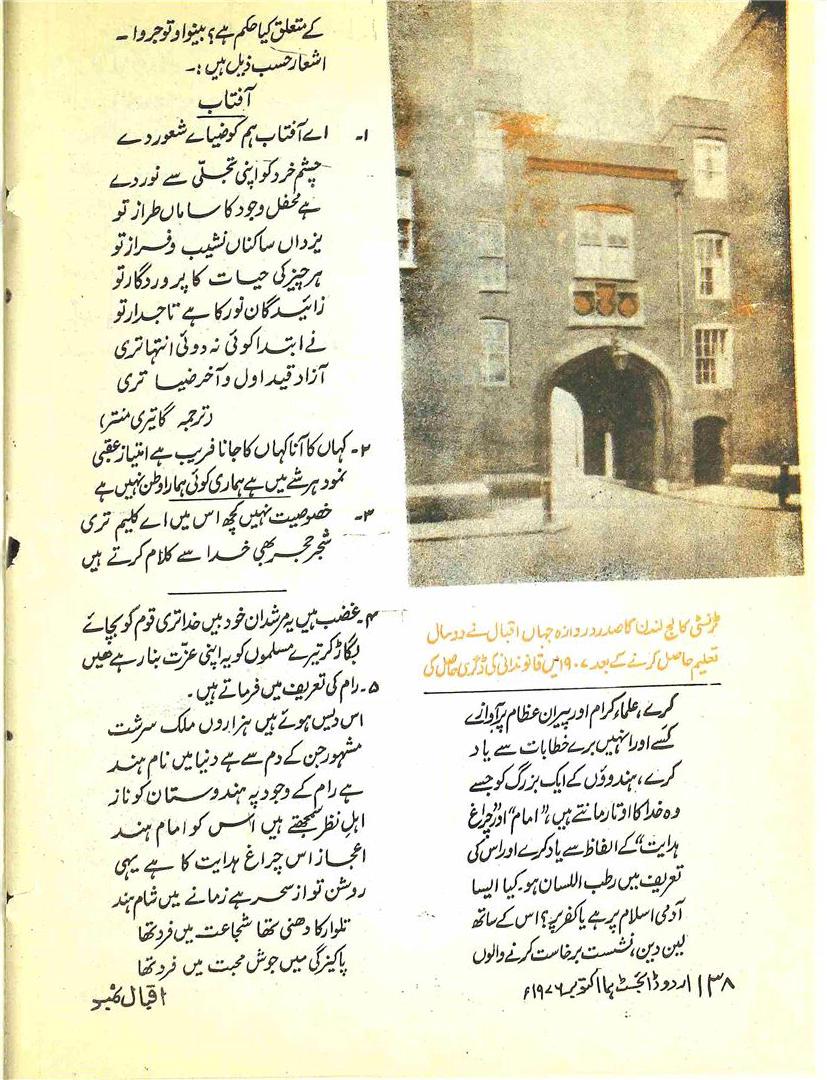 ٹرنٹی کالج لندن کا صدر دروازہ جہاں اقبال نے دو سال
تعلیم حاصل کرنے کے بعد ۱۹۰۷ میں قانون دانی کی ڈگری حاصل کی
کرے، علماء کرام اور پیران عظام پر آوازے
کسے اور انہیں برے خطابات سے یاد
کرے، ہندوؤں کے ایک بزرگ کو جسے
وہ خدا کا اوتار مانتے ہیں، "امام" اور "چراغ
ہدایت" کے الفاظ سے یاد کرے اور اس کی
تعریف میں رطب اللسان ہو۔ کیا ایسا
آدمی اسلام پر ہے یا کفر پر؟ اس کے ساتھ
لین دین، نشست برخاست کرنے والوں
کے متعلق کیا حکم ہے؟ بینوا و توجروا۔
اشعار حسب ذیل ہیں:۔
آفتاب
۱۔ اے آفتاب ہم کو ضیاے شعور دے
چشم خرد کو اپنی تجلّی سے نور دے
ہے محفل وجود کا ساماں طراز تو
یزداں ساکناں نشیب و فراز تو
ہر چیز کی حیات کا پروردگار تو
زائیدگان نور کا ہے تاجدار تو
نے ابتدا کوئی نہ دوئی انتہا تری
آزاد قید اول و آخر ضیا تری
(ترجمہ گایتری منتر)
۲۔ کہاں کا آنا کہاں کا جانا فریب ہے امتیاز عقبی
نمود ہر شے میں ہے ہماری کوئی ہمارا وطن نہیں ہے
۳۔ خصوصیت نہیں کچھ اس میں اے کلیم تری
شجر حجر بھی خدا سے کلام کرتے ہیں
۴۔ غضب ہیں یہ مرشدان خود بیں خدا تری قوم کو بچائے
بگاڑ کر تیرے مسلموں کو یہ اپنی عزّت بنا رہے ھیں
۵۔ رام کی تعریف میں فرماتے ہیں۔
اس دیس ہوئے ہیں ہزاروں ملک سرشت
مشہور جن کے دم سے ہے دنیا میں نام ہند
ہے رام کے وجود پہ ہندوستان کو ناز
اہل نظر سمجھتے ہیں اس کو امام ہند
اعجاز اس چراغ ہدایت کا ہے یہی
روشن تو از سحر ہے زمانے میں شام ہند
تلوار کا دھنی تھا شجاعت میں فرد تھا
پاکیزگی میں جوش محبت میں فرد تھا
۱۳۸ اردو ڈائجسٹ ہما اکتوبر ۱۹۷۶ء
اقبال نمبر